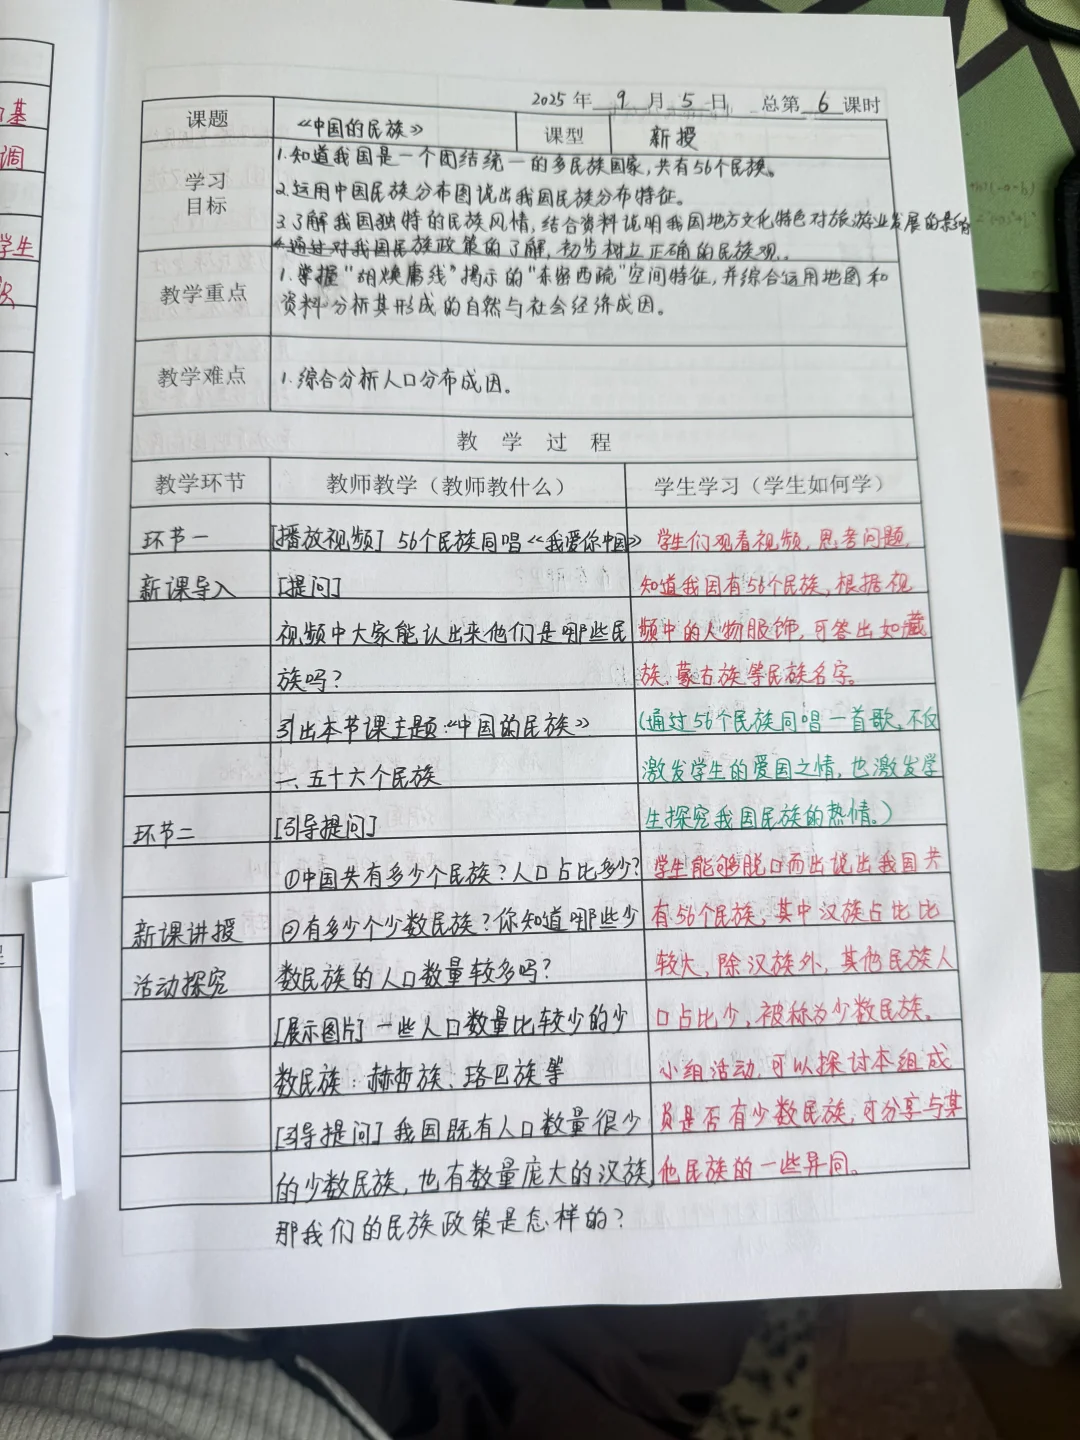 2025 年 9 月 5 日 总第 6 课时
课题 《中国的民族》 课型 新授
学习目标
1.知道我国是一个团结统一的多民族国家,共有56个民族。
2.运用中国民族分布图说出我国民族分布特征。
3.了解我国独特的民族风情,结合资料说明我国地方文化特色对旅游业发展的影响
4.通过对我国民族政策的了解,初步树立正确的民族观。
教学重点
1.掌握"胡焕庸线"揭示的"东密西疏"空间特征,并综合运用地图和
资料分析其形成的自然与社会经济成因。
教学难点
1.综合分析人口分布成因。
教 学 过 程
教学环节 教师教学(教师教什么) 学生学习(学生如何学)
环节一
新课导入
[播放视频] 56个民族同唱《我爱你中国》
[提问]
视频中大家能认出来他们是哪些民
族吗?
引出本节课主题:《中国的民族》
一、五十六个民族
学生们观看视频,思考问题,
知道我国有56个民族,根据视
频中的人物服饰,可答出如藏
族、蒙古族等民族名字。
(通过56个民族同唱一首歌,不仅
激发学生的爱国之情,也激发学
生探究我国民族的热情。)
环节二
新课讲授
活动探究
[引导提问]
①中国共有多少个民族?人口占比多少?
②有多少个少数民族?你知道哪些少
数民族的人口数量较多吗?
[展示图片] 一些人口数量比较少的少
数民族:赫哲族、珞巴族等
[引导提问] 我国既有人口数量很少
的少数民族,也有数量庞大的汉族,
那我们的民族政策是怎样的?
学生能够脱口而出说出我国共
有56个民族,其中汉族占比比
较大,除汉族外,其他民族人
口占比少,被称为少数民族。
小组活动,可以探讨本组成
员是否有少数民族,可分享与其
他民族的一些异同。
基
调
学生